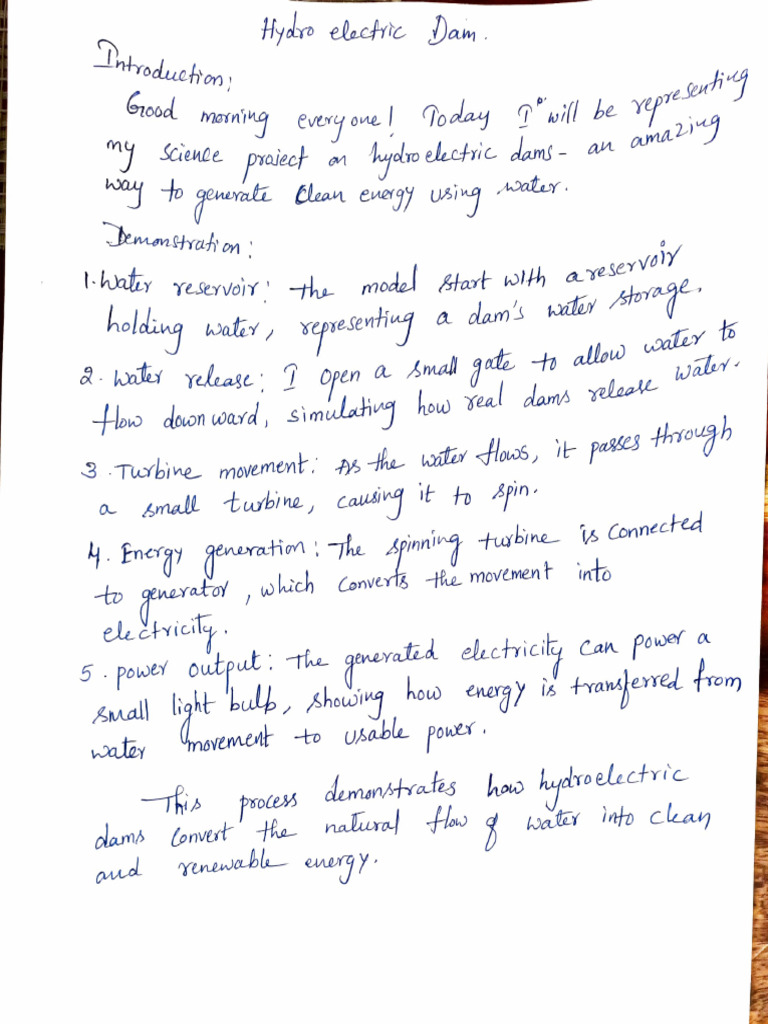 Hydro electric Dam.
Introduction:
Good morning everyone! Today I will be representing
my science project on hydroelectric dams - an amazing
way to generate clean energy using water.
Demonstration:
1. Water reservoir: the model start with a reservoir
holding water, representing a dam's water storage.
2. Water release: I open a small gate to allow water to
flow down ward, simulating how real dams release water.
3. Turbine movement: As the water flows, it passes through
a small turbine, causing it to spin.
4. Energy generation: The spinning turbine is connected
to generator, which converts the movement into
electricity.
5. power output: The generated electricity can power a
small light bulb, showing how energy is transferred from
water movement to usable power.
This process demonstrates how hydroelectric
dams convert the natural flow of water into clean
and renewable energy.